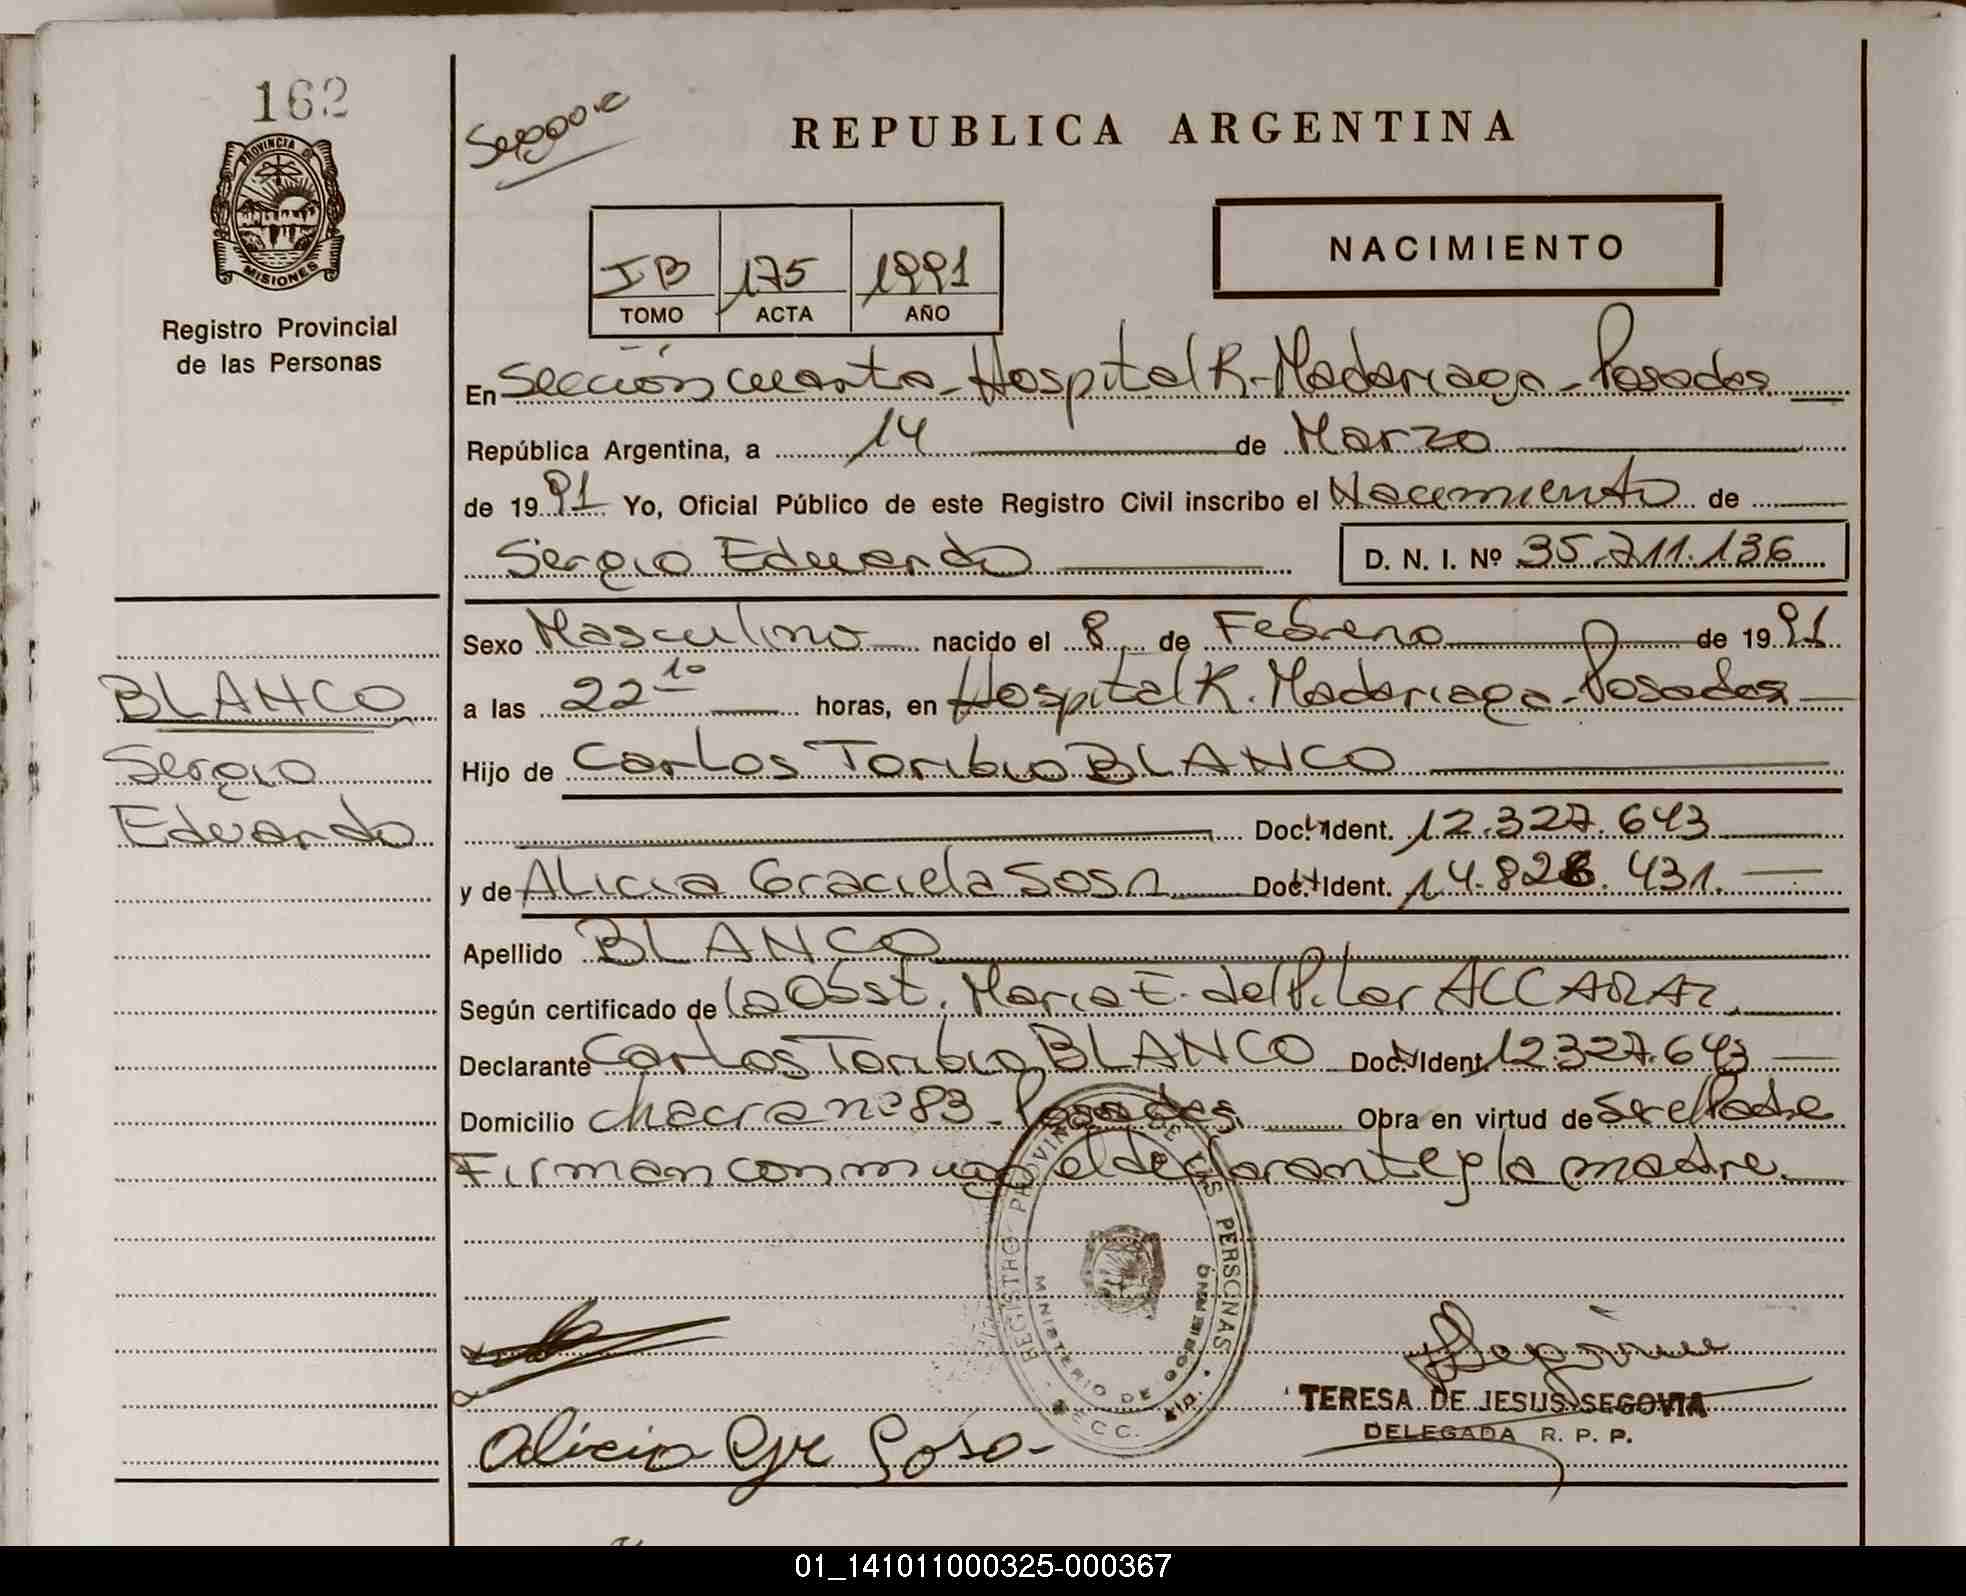 162
PROVINCIA DE
MISIONES
Registro Provincial
de las Personas
REPUBLICA ARGENTINA
NACIMIENTO
IB 175 1991
TOMO ACTA AÑO
En Sección cuarta - Hospital R. Madariaga - Posadas
República Argentina, a 14 de Marzo
de 1991 Yo, Oficial Público de este Registro Civil inscribo el Nacimiento de
Sergio Eduardo D. N. I. Nº 35.711.136
Sexo Masculino nacido el 8 de Febrero de 1991
a las 22 10 horas, en Hospital R. Madariaga - Posadas
Hijo de Carlos Toribio BLANCO
Doc. Ident. 12.327.643
y de Alicia Graciela Sosa Doc. Ident. 14.826.431.
Apellido BLANCO
Según certificado de la Obst. Maria E. del Pilar ALCARAZ
Declarante Carlos Toribio BLANCO Doc. Ident. 12.327.643
Domicilio chacra nº 83 - Posadas Obra en virtud de ser el Padre
Firman conmigo el declarante y la madre.
BLANCO
Sergio
Eduardo
REGISTRO PROVINCIAL DE LAS PERSONAS
MINISTERIO DE GOBIERNO
SECC. 4ta.
Alicia Gr Sosa
TERESA DE JESUS SEGOVIA
DELEGADA R. P. P.
01_141011000325-000367